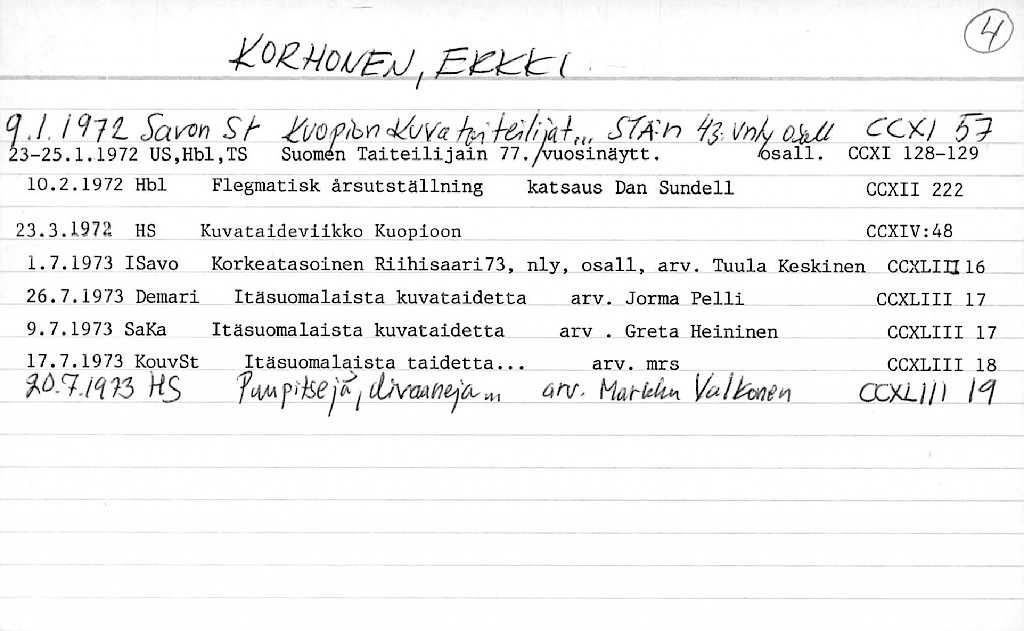 4
KORHONEN, ERKKI
9.1.1972 Savon St Kuopion Kuvataiteilijat... STA:n 43. vnly osall CCXI 57
23-25.1.1972 US,Hbl,TS Suomen Taiteilijain 77./vuosinäytt. osall. CCXI 128-129
10.2.1972 Hbl Flegmatisk årsutställning katsaus Dan Sundell CCXII 222
23.3.1972 HS Kuvataideviikko Kuopioon CCXIV:48
1.7.1973 ISavo Korkeatasoinen Riihisaari73, nly, osall, arv. Tuula Keskinen CCXLIII 16
26.7.1973 Demari Itäsuomalaista kuvataidetta arv. Jorma Pelli CCXLIII 17
9.7.1973 SaKa Itäsuomalaista kuvataidetta arv . Greta Heininen CCXLIII 17
17.7.1973 KouvSt Itäsuomalaista taidetta... arv. mrs CCXLIII 18
20.7.1973 HS Puupitsejä, divaaneja... arv. Markku Valkonen CCXLIII 19